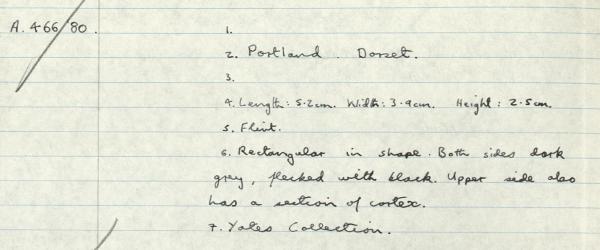 A. 466/80.
1.
2. Portland. Dorset.
3.
4. Length: 5.2cm. Width: 3.9cm. Height: 2.5cm.
5. Flint.
6. Rectangular in shape. Both sides dark
grey, flecked with black. Upper side also
has a section of cortex.
7. Yates Collection.